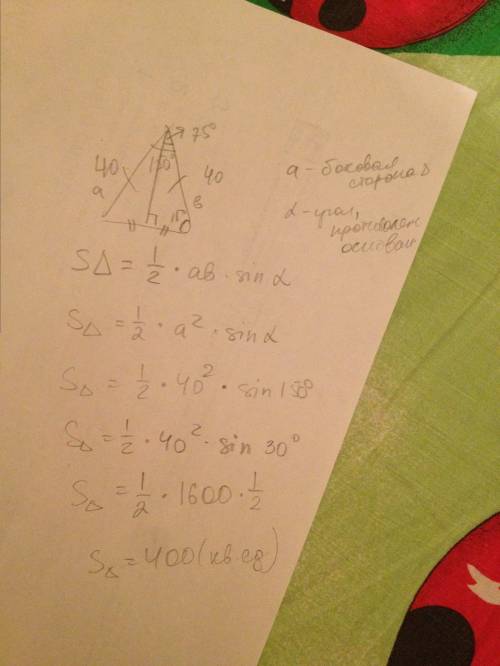 75°
150°
40
40
a
в
15°
a - боковая
сторона
α - угол,
основан
S△ = 1/2 · ab · sin α
S△ = 1/2 · a² · sin α
S△ = 1/2 · 40² · sin 150°
S△ = 1/2 · 40² · sin 30°
S△ = 1/2 · 1600 · 1/2
S△ = 400 (кв.ед)